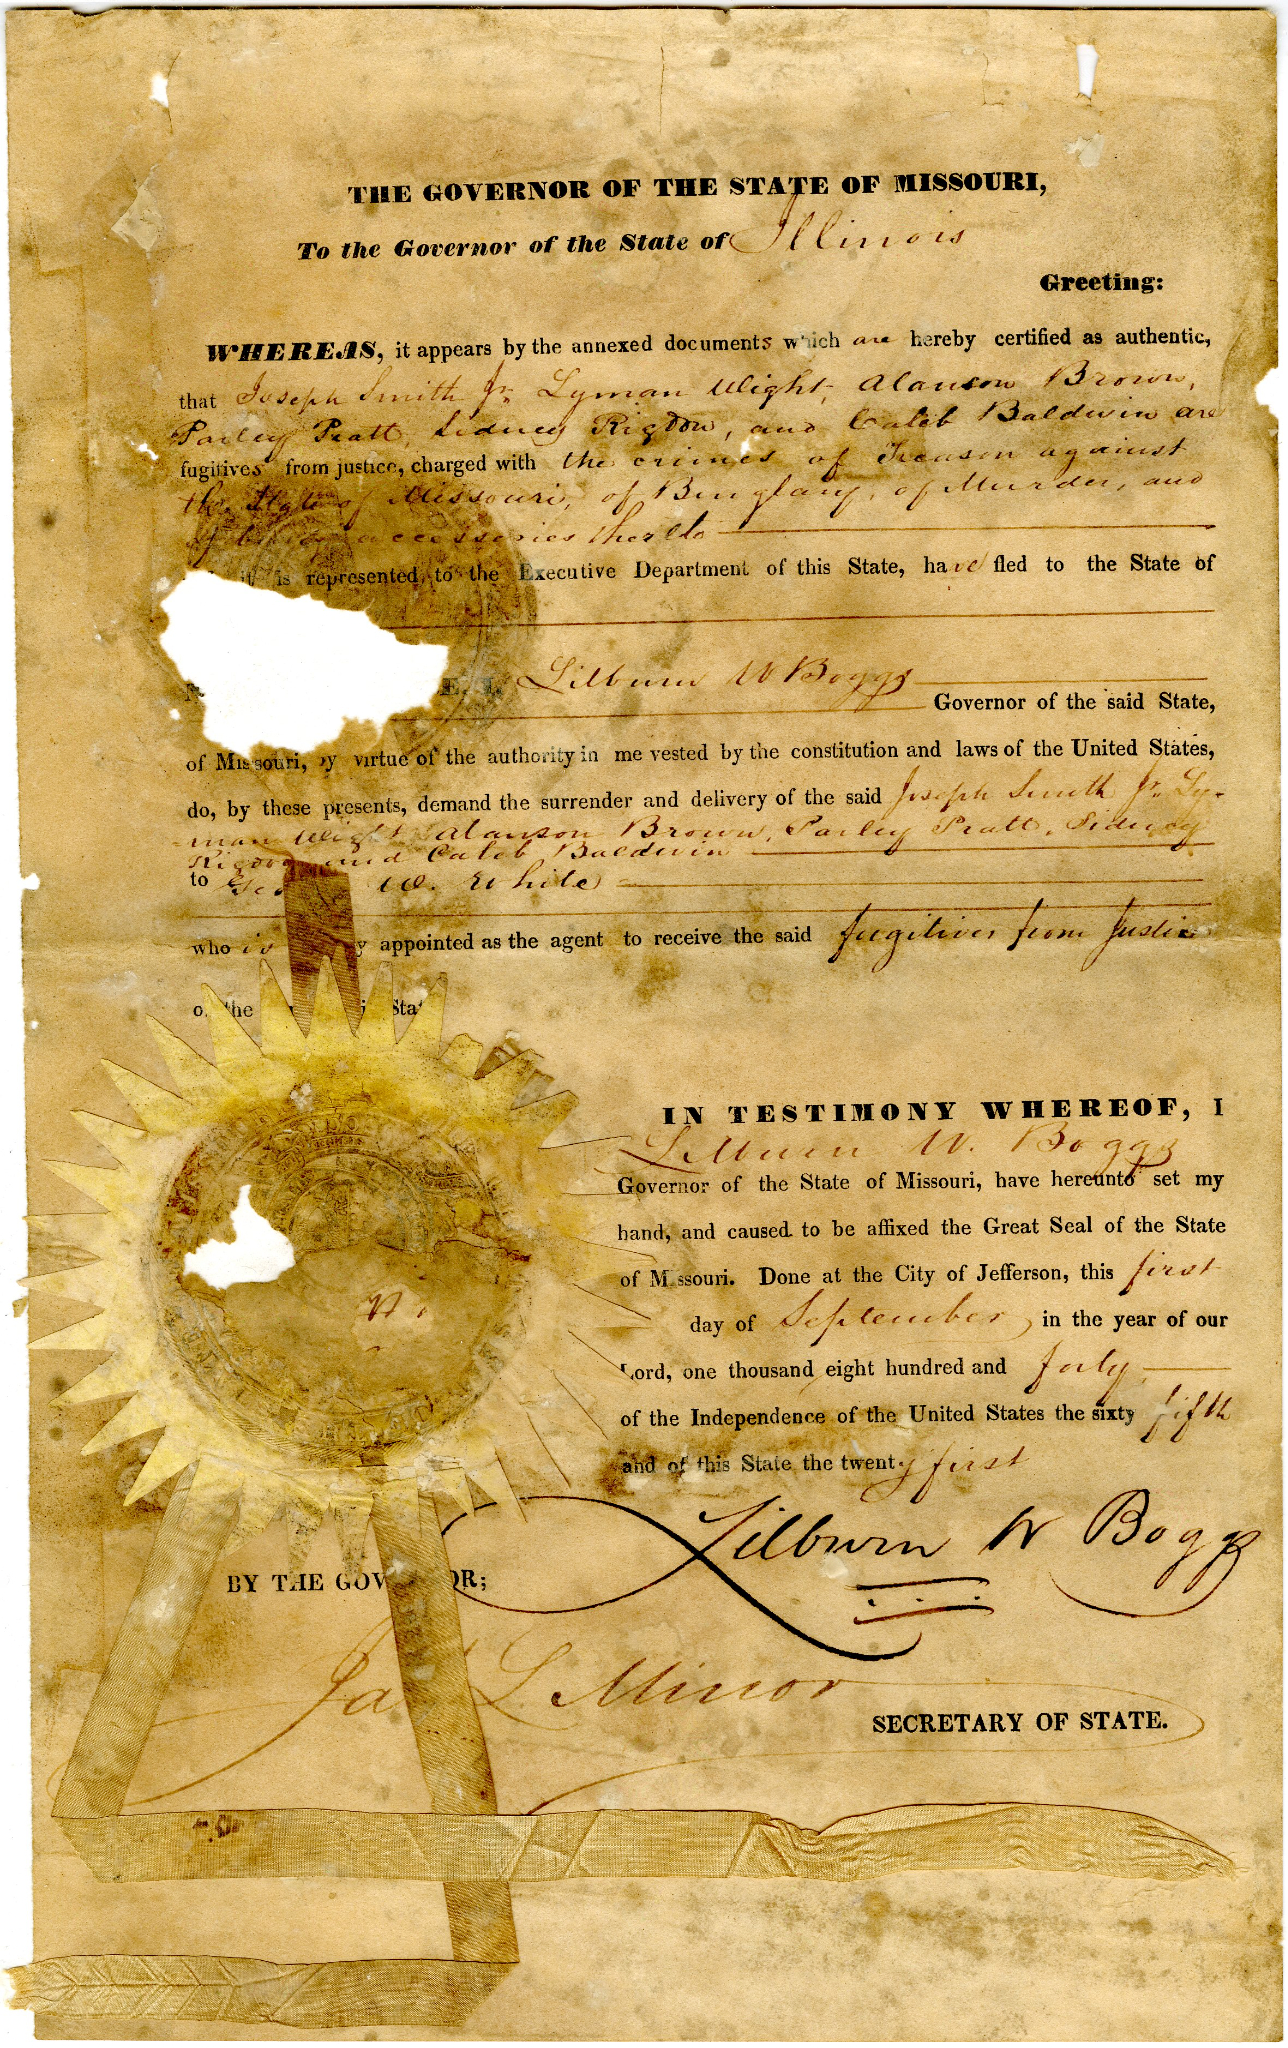 THE GOVERNOR OF THE STATE OF MISSOURI,
To the Governor of the State of Illinois
Greeting:
WHEREAS, it appears by the annexed documents which are hereby certified as authentic,
that Joseph Smith Jr. Lyman Wight, Alanson Brown,
Parley Pratt, Sidney Rigdon, and Caleb Baldwin are
fugitives from justice, charged with the crimes of Treason against
the State of Missouri, of Burglary, of Murder, and
of being accessories thereto
it is represented to the Executive Department of this State, have fled to the State of
E, I, Lilburn W Boggs
Governor of the said State,
of Missouri, by virtue of the authority in me vested by the constitution and laws of the United States,
do, by these presents, demand the surrender and delivery of the said Joseph Smith Jr. Ly-
man Wight Alanson Brown, Parley Pratt, Sidney
Rigdon and Caleb Baldwin
to W. White
who is appointed as the agent to receive the said fugitives from Justice
of the Stat
IN TESTIMONY WHEREOF, I
Lilburn W. Boggs
Governor of the State of Missouri, have hereunto set my
hand, and caused to be affixed the Great Seal of the State
of Missouri. Done at the City of Jefferson, this first
day of September, in the year of our
Lord, one thousand eight hundred and forty
of the Independence of the United States the sixty fifth
and of this State the twenty first
Lilburn W Boggs
BY THE GOVERNOR;
Jas L Minor
SECRETARY OF STATE.